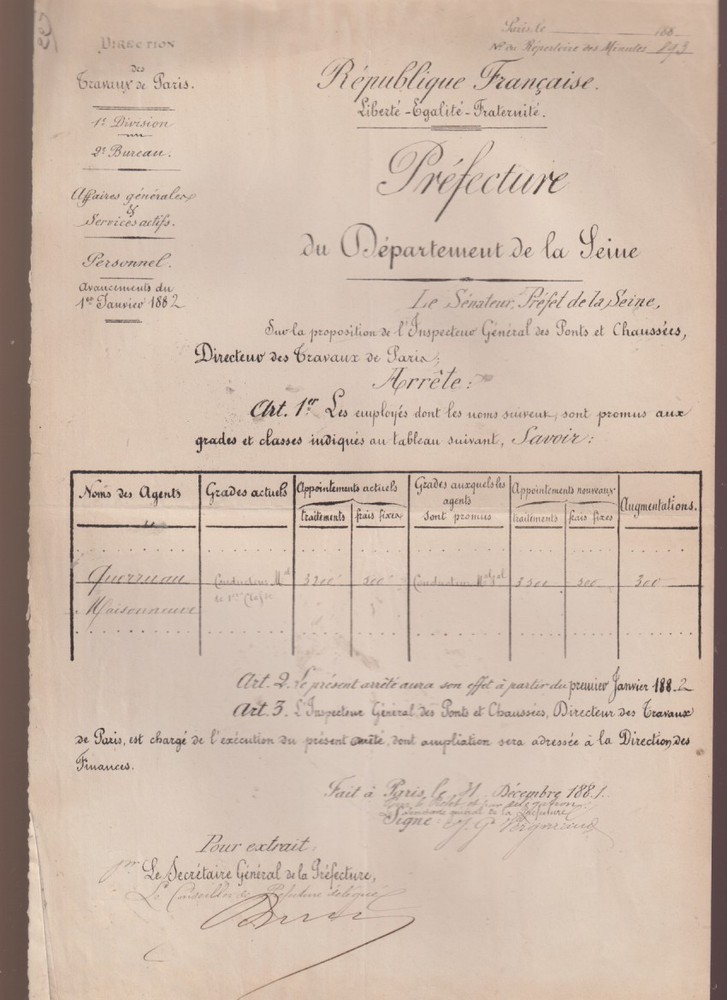 Paris, le 188
N° du Répertoire des Minutes
DIRECTION
des
Travaux de Paris.
1re Division
2e Bureau.
Affaires générales
&
Services actifs.
Personnel.
Avancements du
1er Janvier 1882
République Française.
Liberté - Egalité - Fraternité.
Préfecture
du Département de la Seine
Le Sénateur, Préfet de la Seine,
Sur la proposition de l'Inspecteur Général des Ponts et Chaussées,
Directeur des Travaux de Paris;
Arrête:
Art. 1er Les employés dont les noms suivent, sont promus aux
grades et classes indiqués au tableau suivant, Savoir:
Noms des Agents
Grades actuels
Appointements actuels
traitements
frais fixes
Grades auxquels les
agents
sont promus
Appointements nouveaux
traitements
frais fixes
Augmentations.
Conducteur
Maisonneuve
300
Art. 2. Le présent arrêté aura son effet à partir du premier Janvier 1882
Art. 3. L'Inspecteur Général des Ponts et Chaussées, Directeur des Travaux
de Paris, est chargé de l'exécution du présent arrêté, dont ampliation sera adressée à la Direction des
Finances.
Fait à Paris, le 31 Décembre 1881.
Pour le Préfet et par délégation
de la Préfecture
Signé:
Pour extrait:
pr Le Secrétaire Général de la Préfecture,
Le Conseiller de Préfecture délégué